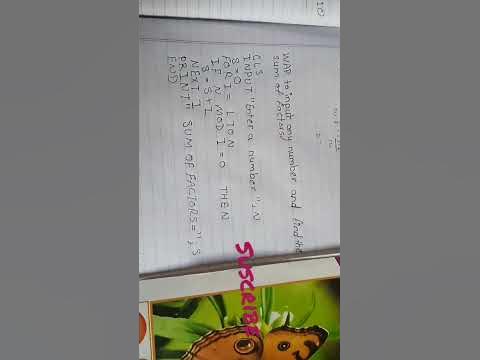 WAP to input any number and find the
sum of factors)
CLS
INPUT "Enter a number ", N
S=0
FOR I = 1 TO N
IF N MOD I = 0 THEN
S = S + I
NEXT I
PRINT " SUM OF FACTORS = "; S
END
SUSCRIBE